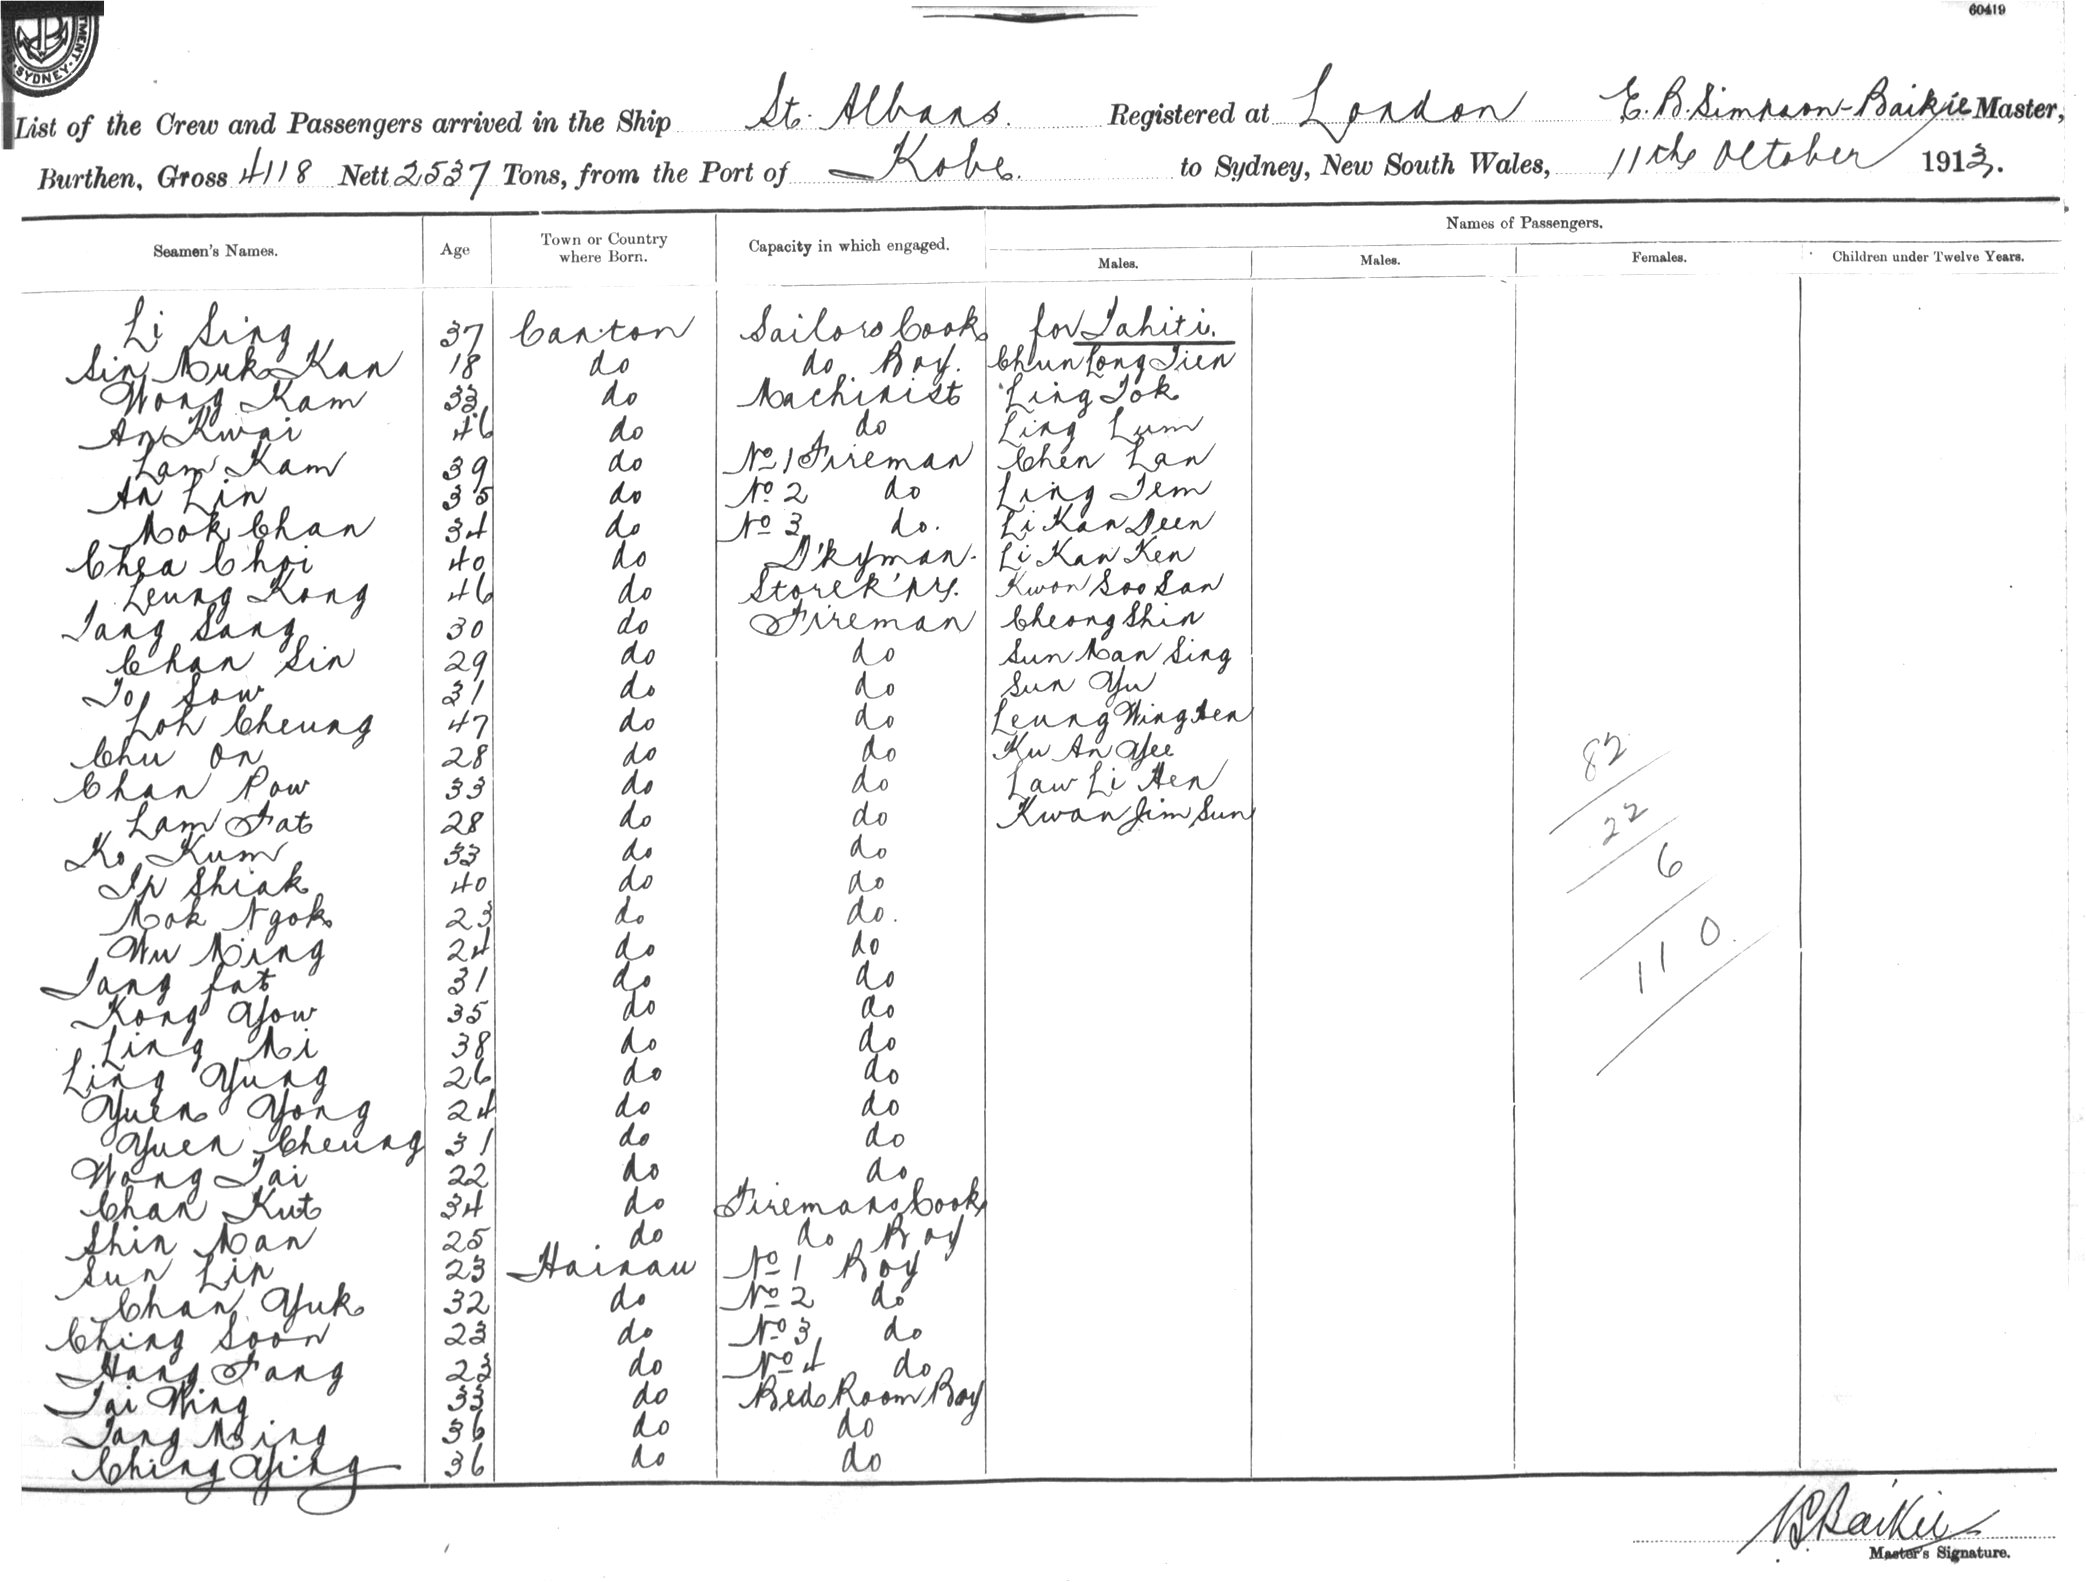 60419
SYDNEY
List of the Crew and Passengers arrived in the Ship St. Albans. Registered at London E. B. Simpson-Baikie Master,
Burthen, Gross 4118 Nett 2537 Tons, from the Port of Kobe. to Sydney, New South Wales, 11th October 1913.
Names of Passengers.
Seamen's Names. Age Town or Country where Born. Capacity in which engaged. Males. Males. Females. Children under Twelve Years.
Li Sing 37 Canton Sailors Cook for Tahiti.
Sin Muk Kan 18 do do Boy. Chun Long Tien
Wong Kam 33 do Machinist Ling Tok
An Kwai 46 do do Ling Lum
Lam Kam 39 do No 1 Fireman Chen Lan
An Lin 35 do No 2 do Ling Tem
Mok Chan 34 do No 3 do. Li Kan Deen
Chea Choi 40 do D'kyman. Li Kan Ken
Leung Kong 46 do Storek'pr. Kwon Soo San
Tang Sang 30 do Fireman Cheong Shin
Chan Sin 29 do do Sun Man Sing
To Sow 31 do do Sun Yu
Loh Cheung 47 do do Leung Wing Hen
Chu On 28 do do Ku An Yee
Chan Pow 33 do do Law Li Hen
Lam Fat 28 do do Kwan Jim Sun
Ko Kum 33 do do
Ip Shiak 40 do do
Mok Ngok 23 do do.
Wu Ming 24 do do
Tang fat 31 do do
Kong Yow 35 do do
Ling Mi 38 do do
Ling Yung 26 do do
Yuen Yong 24 do do
Yuen Cheung 31 do do
Wong Tai 22 do do
Chan Kut 34 do Firemans Cook
Shin Man 25 do do Boy
Sun Lin 23 Hainau No 1 Boy
Chan Yuk 32 do No 2 do
Ching Soon 23 do No 3 do
Hang Fang 23 do No 4 do
Tai Wing 33 do Bed Room Boy
Tang Ming 36 do do
Ching Ying 36 do do
82
22
6
110.
Baikie
Master's Signature.